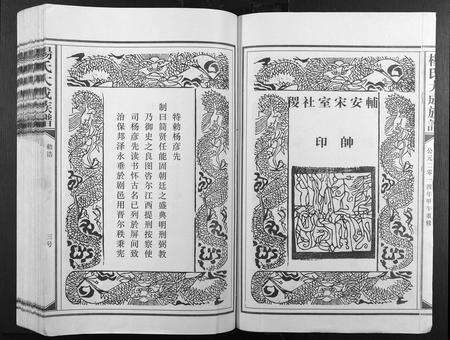 楊氏大成族譜
公元二零一四年甲午重修
輔安宋室社稷
帥印
特勅杨彦先
制曰简贤任能固朝廷之盛典明刑弼教
乃御史之良图咨尔江西提刑按察使
司杨彦先读书怀古名已列於屏间致
治保邦泽永垂於朝邑用晋尔秩秉宪
楊氏大成族譜
勅浩
三号